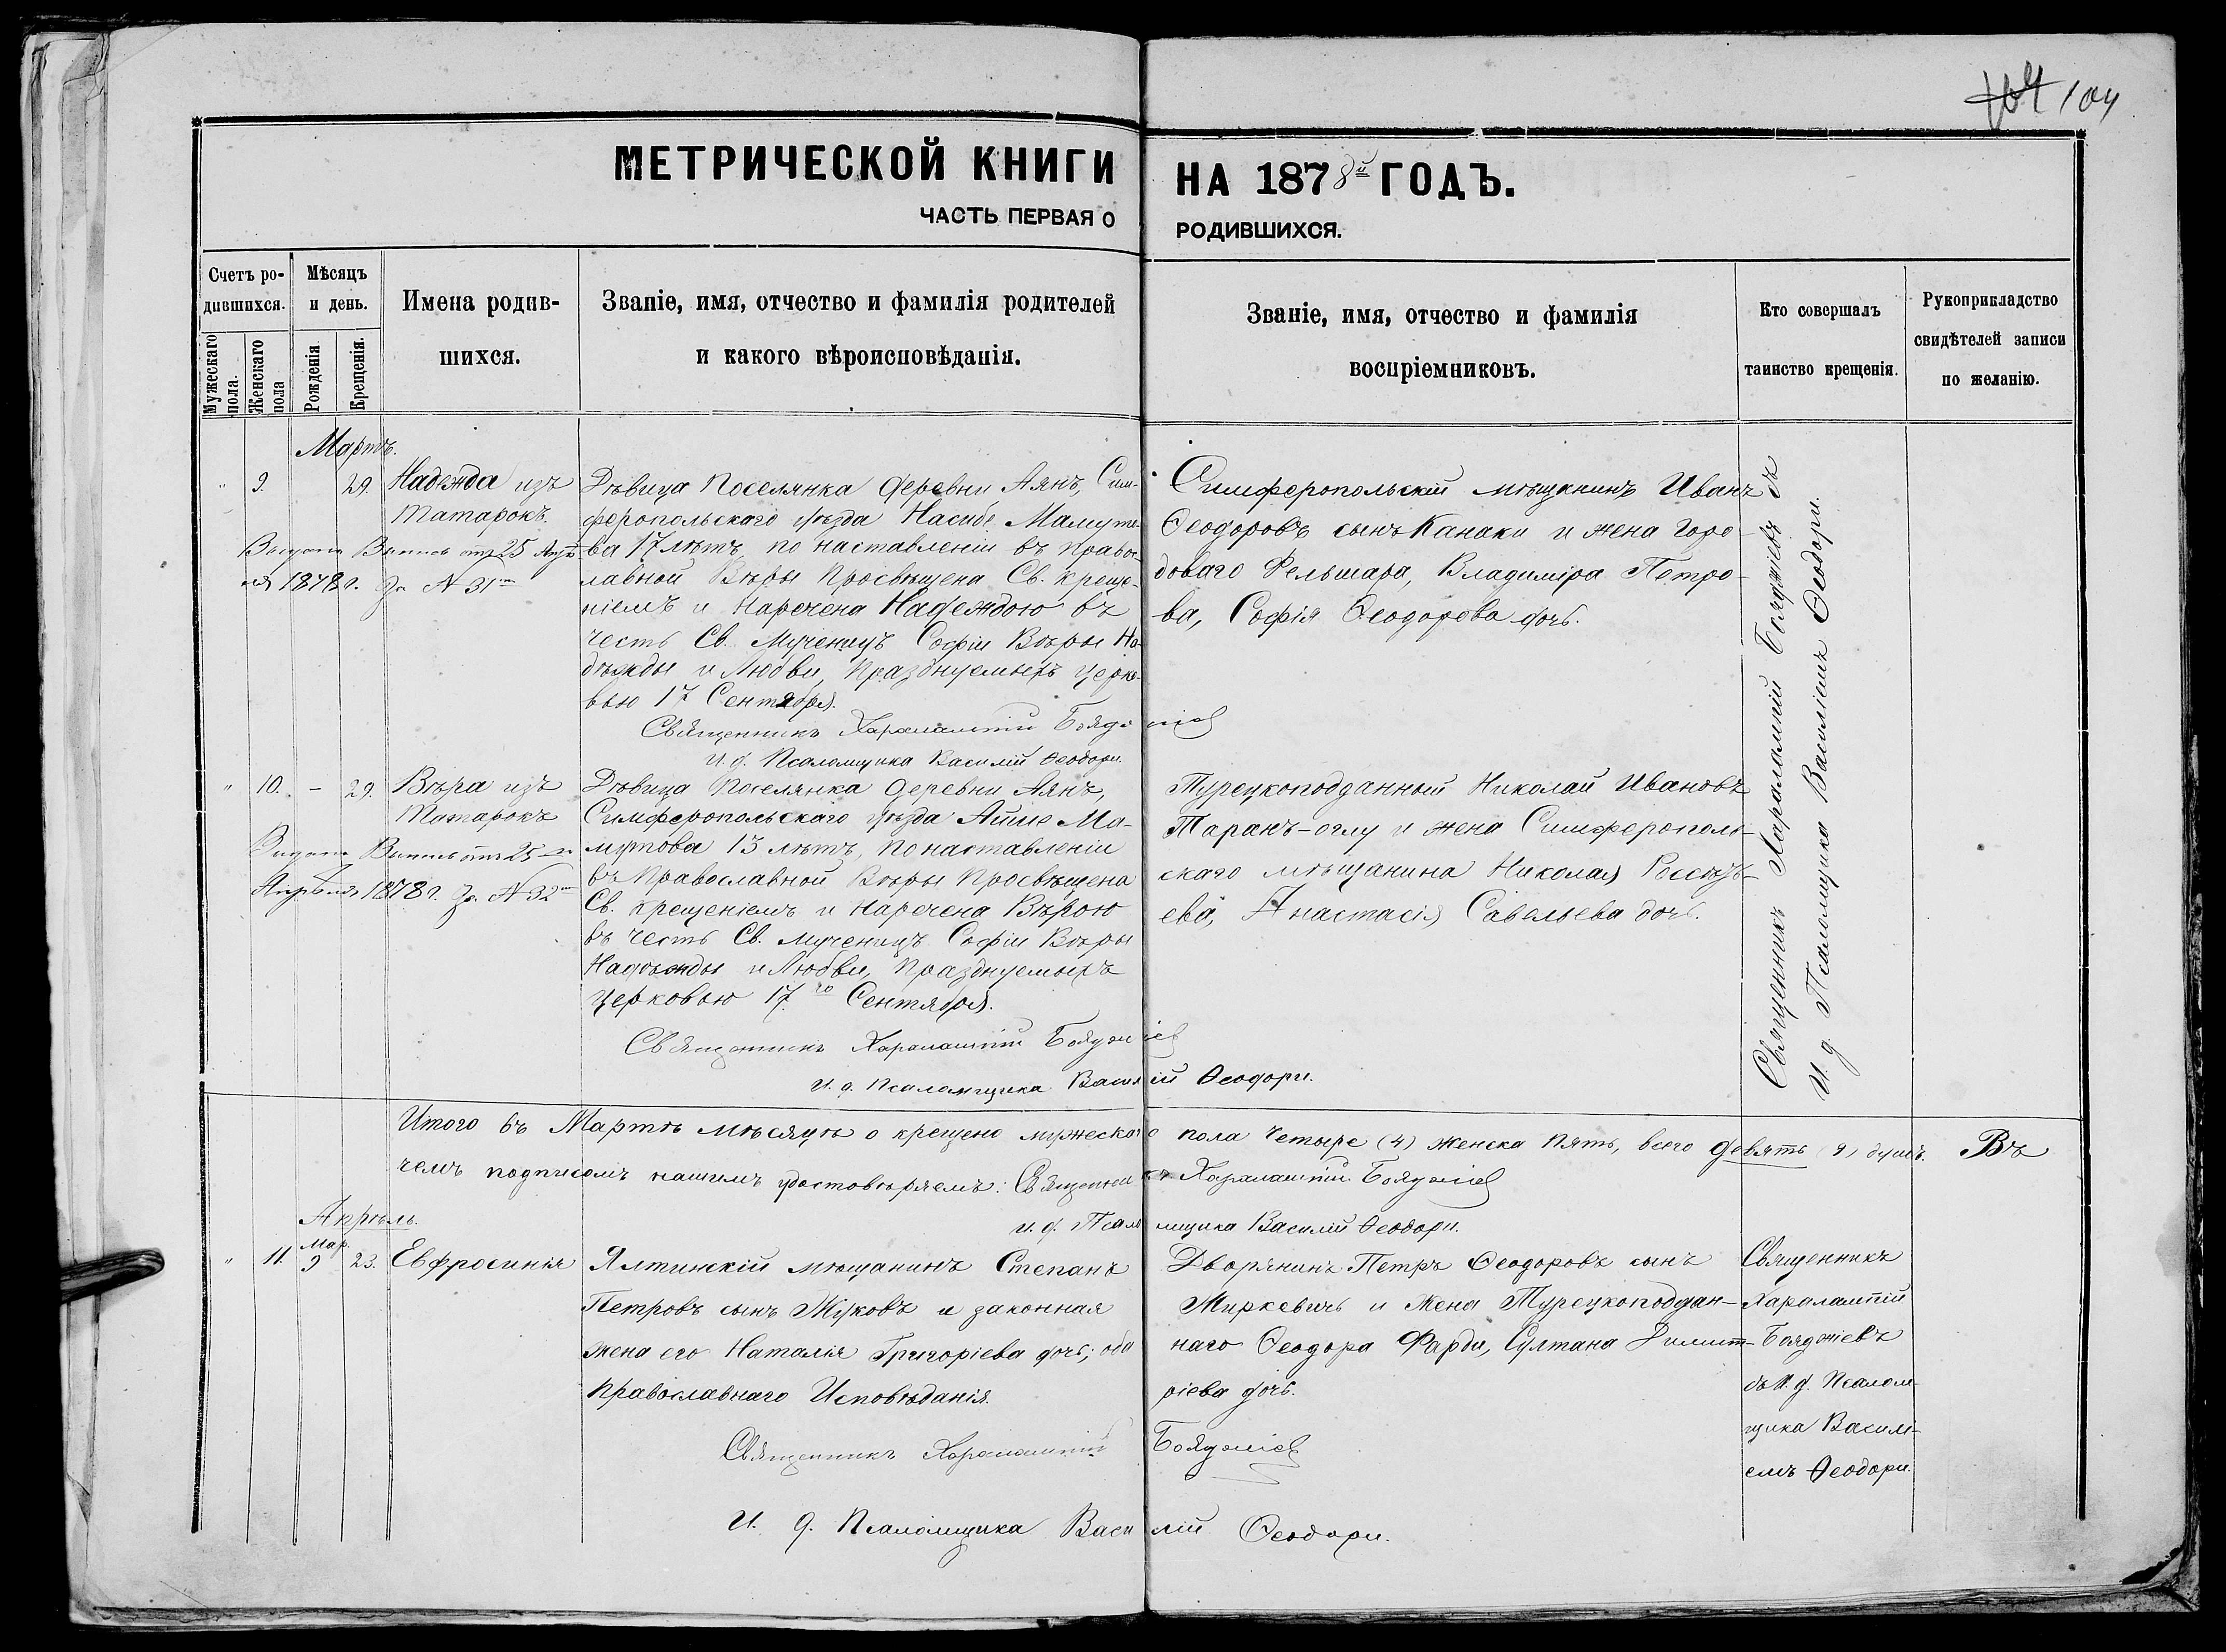 104 104
МЕТРИЧЕСКОЙ КНИГИ НА 1878й ГОДЪ.
ЧАСТЬ ПЕРВАЯ О РОДИВШИХСЯ.
Счетъ родившихся.
Мужескаго пола.
Женскаго пола
Мѣсяцъ и день.
Рожденія
Крещенія.
Имена родив-
шихся.
Званіе, имя, отчество и фамилія родителей
и какого вѣроисповѣданія.
Званіе, имя, отчество и фамилія
воспріемниковъ.
Кто совершалъ
таинство крещенія.
Рукоприкладство
свидѣтелей записи
по желанію.
Мартъ.
" 9. 29. Надежда изъ
Татарокъ.
Выдана Выпись отъ 25 Апрѣ-
ля 1878 г. за N 31
Дѣвица Поселянка деревни Аянъ, Сим-
феропольскаго уѣзда Насибе Мамуто-
ва 17 лѣтъ, по наставленіи въ Право-
лавной Вѣры Просвѣщена Св. Креще-
ніемъ и Наречена Надеждою въ
честь Св. Мученицъ Софіи Вѣры На-
дѣжды и Любви, Празднуемыхъ Церко-
вью 17 Сентября.
Священникъ Харалампій Бояджіев
И. д. Псаломщика Василій Ѳеодори.
Симферопольскій мѣщанинъ Иванъ
Ѳеодоровъ сынъ Канаки и жена Горо-
доваго Фельшара, Владиміра Петро-
ва, Софія Ѳеодорова дочь.
Священникъ Харалампій Бояджіевъ съ
И. д. Псаломщика Василіемъ Ѳеодори.
" 10. - 29. Вѣра изъ
Татарокъ
Выдана Выпись отъ 25
Апрѣля 1878 г. за N 32
Дѣвица Поселянка деревни Аянъ,
Симферопольскаго уѣзда Айше Ма-
мутова 13 лѣтъ, по наставленіи
въ Православной Вѣры Просвѣщена
Св. Крещеніемъ и Наречена Вѣрою
въ честь Св. Мученицъ Софіи Вѣры
Надѣжды и Любви, Празднуемыхъ
Церковью 17.го Сентября.
Священникъ Харалампій Бояджіев
И. д. Псаломщика Василій Ѳеодори.
Турецкоподданный Николай Ивановъ
Таранъ-оглу и жена Симферополь-
скаго мѣщанина Николая
ева, Анастасія Савельева дочь.
Итого въ Мартѣ мѣсяцѣ окрещено мужескаго пола Четыре (4) Женска Пять, всего девять (9) душъ. Въ
чемъ подписомъ нашимъ удостовѣряемъ: Священникъ Харалампій Бояджіев
И. д. Псаломщика Василій Ѳеодори.
Апрѣль.
Мар.
" 11. 9 23. Евфросинія
Ялтинскій мѣщанинъ Степанъ
Петровъ сынъ Жуковъ и законная
жена его Наталія Григоріева дочь; оба
Православнаго Исповѣданія.
Священникъ Харалампій Бояджіев
И. д. Псаломщика Василій Ѳеодори.
Дворянинъ Петръ Ѳеодоровъ сынъ
Миркевичъ и Жена Турецкоподдан-
наго Ѳеодора Фарди, Султана Димит-
ріева дочь.
Священникъ
Харалампій
Бояджіевъ
съ И. д. Псалом-
щика Василі-
емъ Ѳеодори.